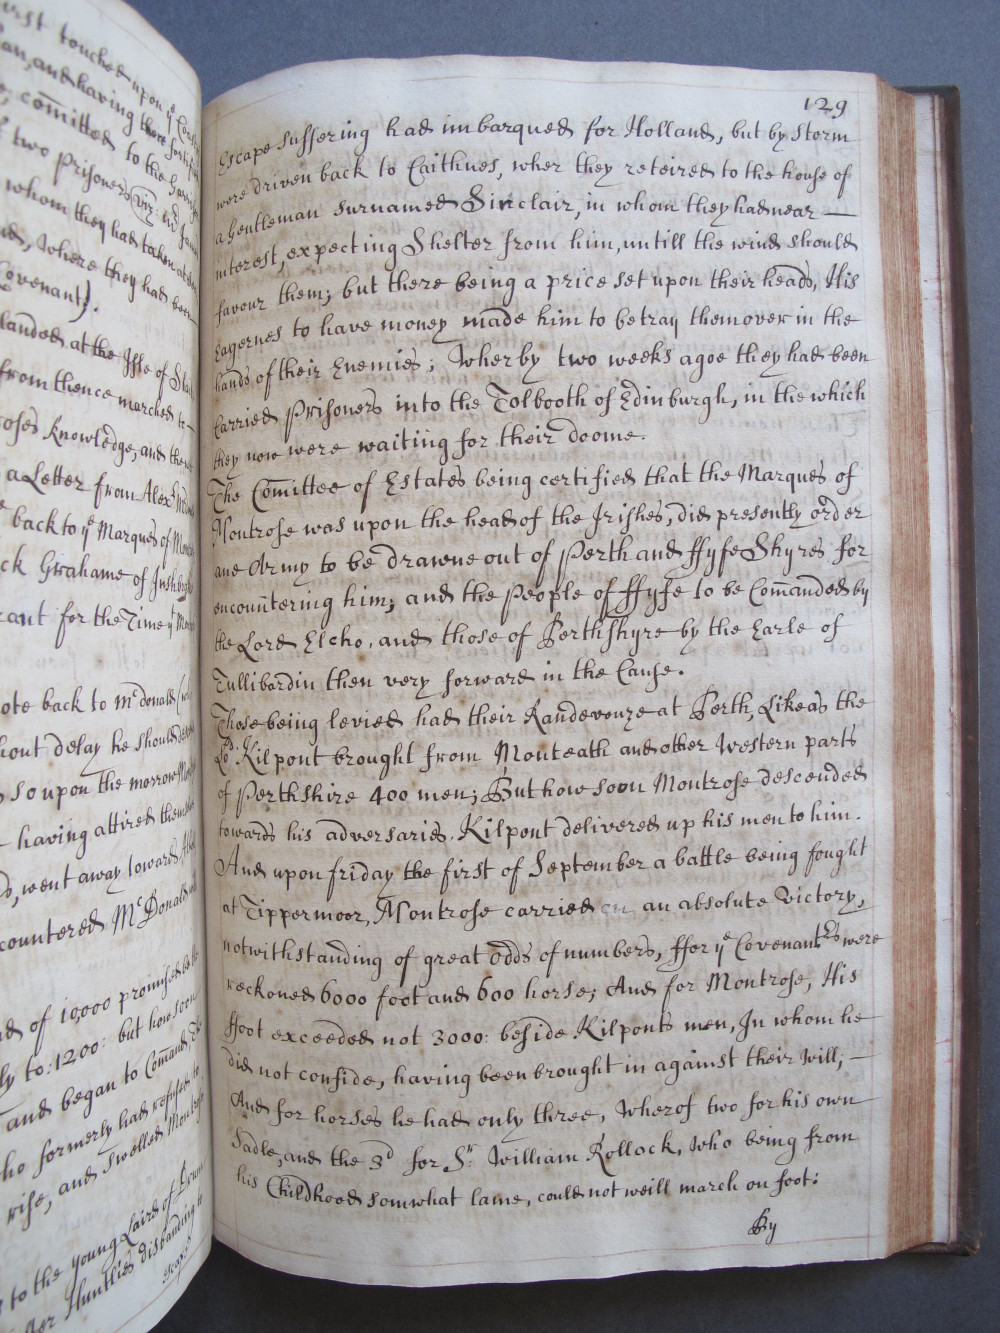 irst touched upon yᵉ
an, and having there
committed to the
two Prisoners viz:
whom they had taken
where they had been
Covenant).
landed at the Isle of
from thence marched to
roses Knowledge, and
a Letter from Alexʳ
back to yᵉ Marques of
ck Grahame of
rant for the Time yᵉ
ote back to Mᶜdonald
hout delay he should
so upon the morrow
having attired
went away towards
countered MᶜDonald
of 10,000 promised
ly to: 1200: but how soon
and began to Comand,
ho formerly had refused to
rise, and swelled
to the young Laird of
Huntlies disbanding to
escape
129
Escape suffering had imbarqued for Holland, but by storm
were driven back to Caithnes, wher they reteired to the house of
a Gentleman surnamed Sinclair, in whom they had near —
interest, expecting Shelter from him, untill the wind should
favour them; but there being a price set upon their heads, His
Eagernes to have money made him to betray them over in the
hands of their Enemies; Wherby two weeks agoe they had been
Carried Prisoners into the Tolbooth of Edinburgh, in the which
they now were waiting for their doome.
The Comittee of Estates being certified that the Marques of
Montrose was upon the head of the Irishes, did presently order
ane Army to be drawne out of Perth and ffyfe Shyres for
encountering him; and the People of ffyfe to be Comanded by
the Lord Elcho, and those of Perthshyre by the Earle of
Tullibardin then very forward in the Cause.
Those being levied had their Randevouze at Perth, Likeas the
Lᵈ. Kilpont brought from Monteath and other Western parts
of Perthshire 400 men; But how soon Montrose descended
towards his adversaries, Kilpont delivered up his men to him.
And upon friday the first of September a battle being fought
at Tippermoor, Montrose carried an absolute Victory,
notwithstanding of great odds of numbers, ffor yᵉ Covenantᵉʳˢ were
reckoned 6000 foot and 600 horse; And for Montrose, His
ffoot exceeded not 3000: beside Kilponts men, In whom he
did not confide, having been brought in against their will; —
And for horses he had only three, Wherof two for his own
Sadle, and the 3ᵈ for Sʳ. William Rollock, Who being from
his Childhood somwhat lame, could not weill march on foot:
By